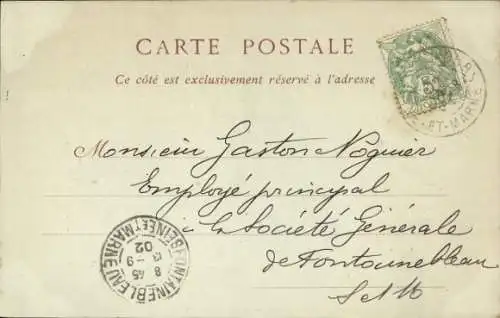 CARTE POSTALE
Ce côté est exclusivement réservé à l'adresse
5
ET-MARNE
Monsieur Gaston Noguier
Employé principal
à la Société Générale
de Fontainebleau
S et M
FONTAINEBLEAU
SEINE ET MARNE
8 45
9
02